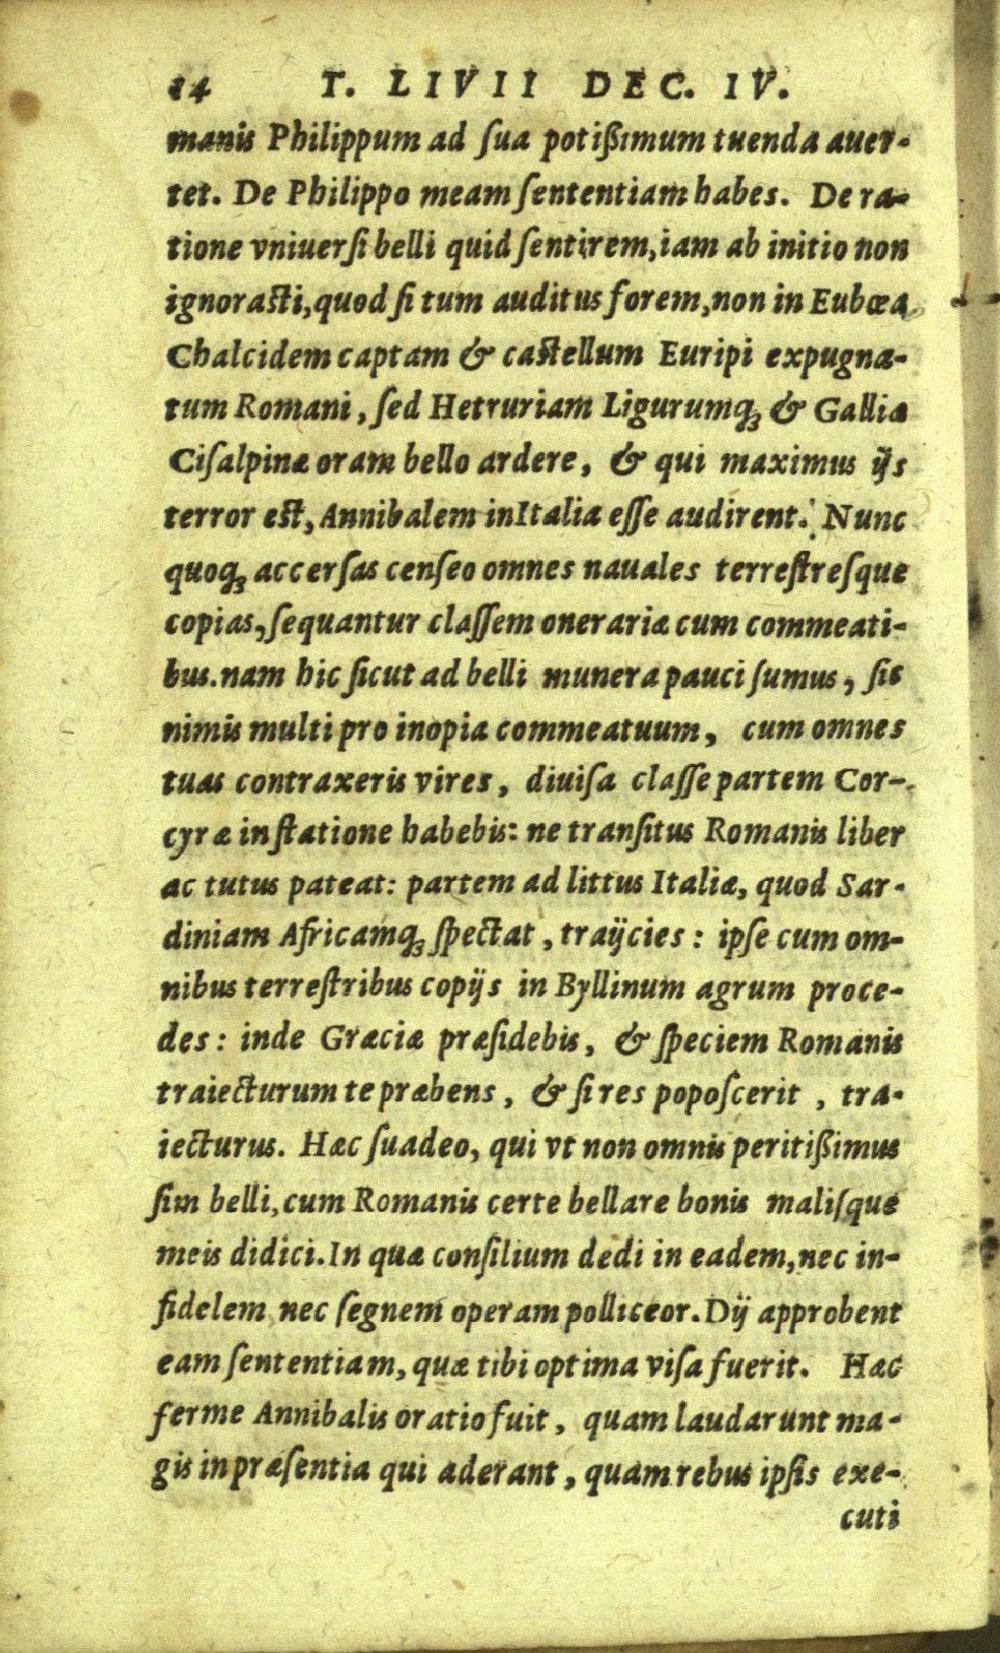 14 T. LIVII DEC. IV.
manis Philippum ad ſua potißimum tuenda auer-
tet. De Philippo meam ſententiam habes. De ra-
tione vniuerſi belli quid ſentirem, iam ab initio non
ignoraſti, quod ſi tum auditus forem, non in Eubœa
Chalcidem captam & caſtellum Euripi expugna-
tum Romani, ſed Hetruriam Ligurumq́ʒ & Galliæ
Ciſalpinæ oram bello ardere, & qui maximus ijs
terror eſt, Annibalem in Italia eſſe audirent. Nunc
quoqʒ accerſas cenſeo omnes nauales terreſtreſque
copias, ſequantur claſſem onerariæ cum commeati-
bus. nam hic ſicut ad belli munera pauci ſumus, ſic
nimis multi pro inopia commeatuum, cum omnes
tuas contraxeris vires, diuiſa claſſe partem Cor-
cyræ in ſtatione habebis: ne tranſitus Romanis liber
ac tutus pateat: partem ad littus Italiæ, quod Sar-
diniam Africamqʒ ſpectat, traijcies: ipſe cum om-
nibus terreſtribus copijs in Byllinum agrum proce-
des: inde Græciæ præſidebis, & ſpeciem Romanis
traiecturum te præbens, & ſi res popoſcerit, tra-
iecturus. Hæc ſuadeo, qui vt non omnis peritißimus
ſim belli, cum Romanis certe bellare bonis maliſque
meis didici. In quæ conſilium dedi in eadem, nec in-
fidelem nec ſegnem operam polliceor. Dij approbent
eam ſententiam, quæ tibi optima viſa fuerit. Hæc
ferme Annibalis oratio fuit, quam laudarunt ma-
gis in præſentia qui aderant, quam rebus ipſis exe-
cuti